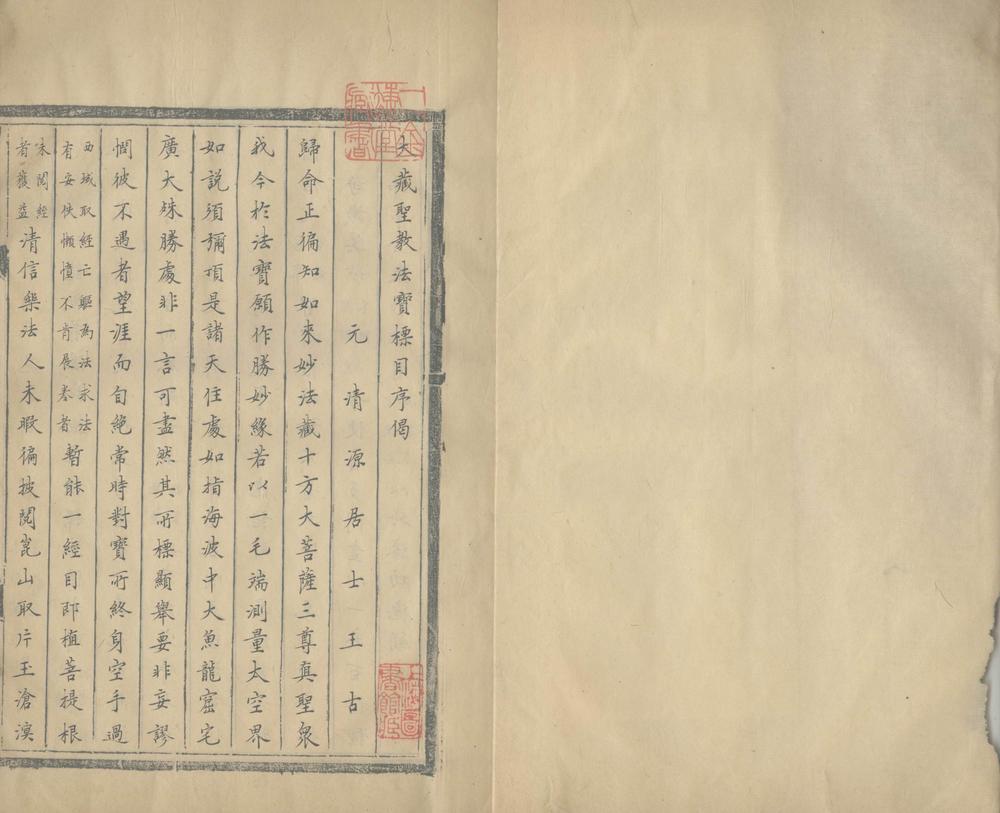 大藏聖教法寶標目序偈
元清源居士王古
歸命正徧知如來妙法藏十方大菩薩三尊真聖衆
我今於法寶願作勝妙緣若以一毛端測量太空界
如說須彌頂是諸天住處如指海波中大魚龍窟宅
廣大殊勝處非一言可盡然其所標顯舉要非妄謬
憫彼不遇者望涯而自絶常時對寶所終身空手過
西域取經亡軀為法求法
有安佚懶憜不肯展卷者
暫能一經目即植菩提根
未閱經
者獲益
清信樂法人未暇徧披閱崑山取片玉滄溟